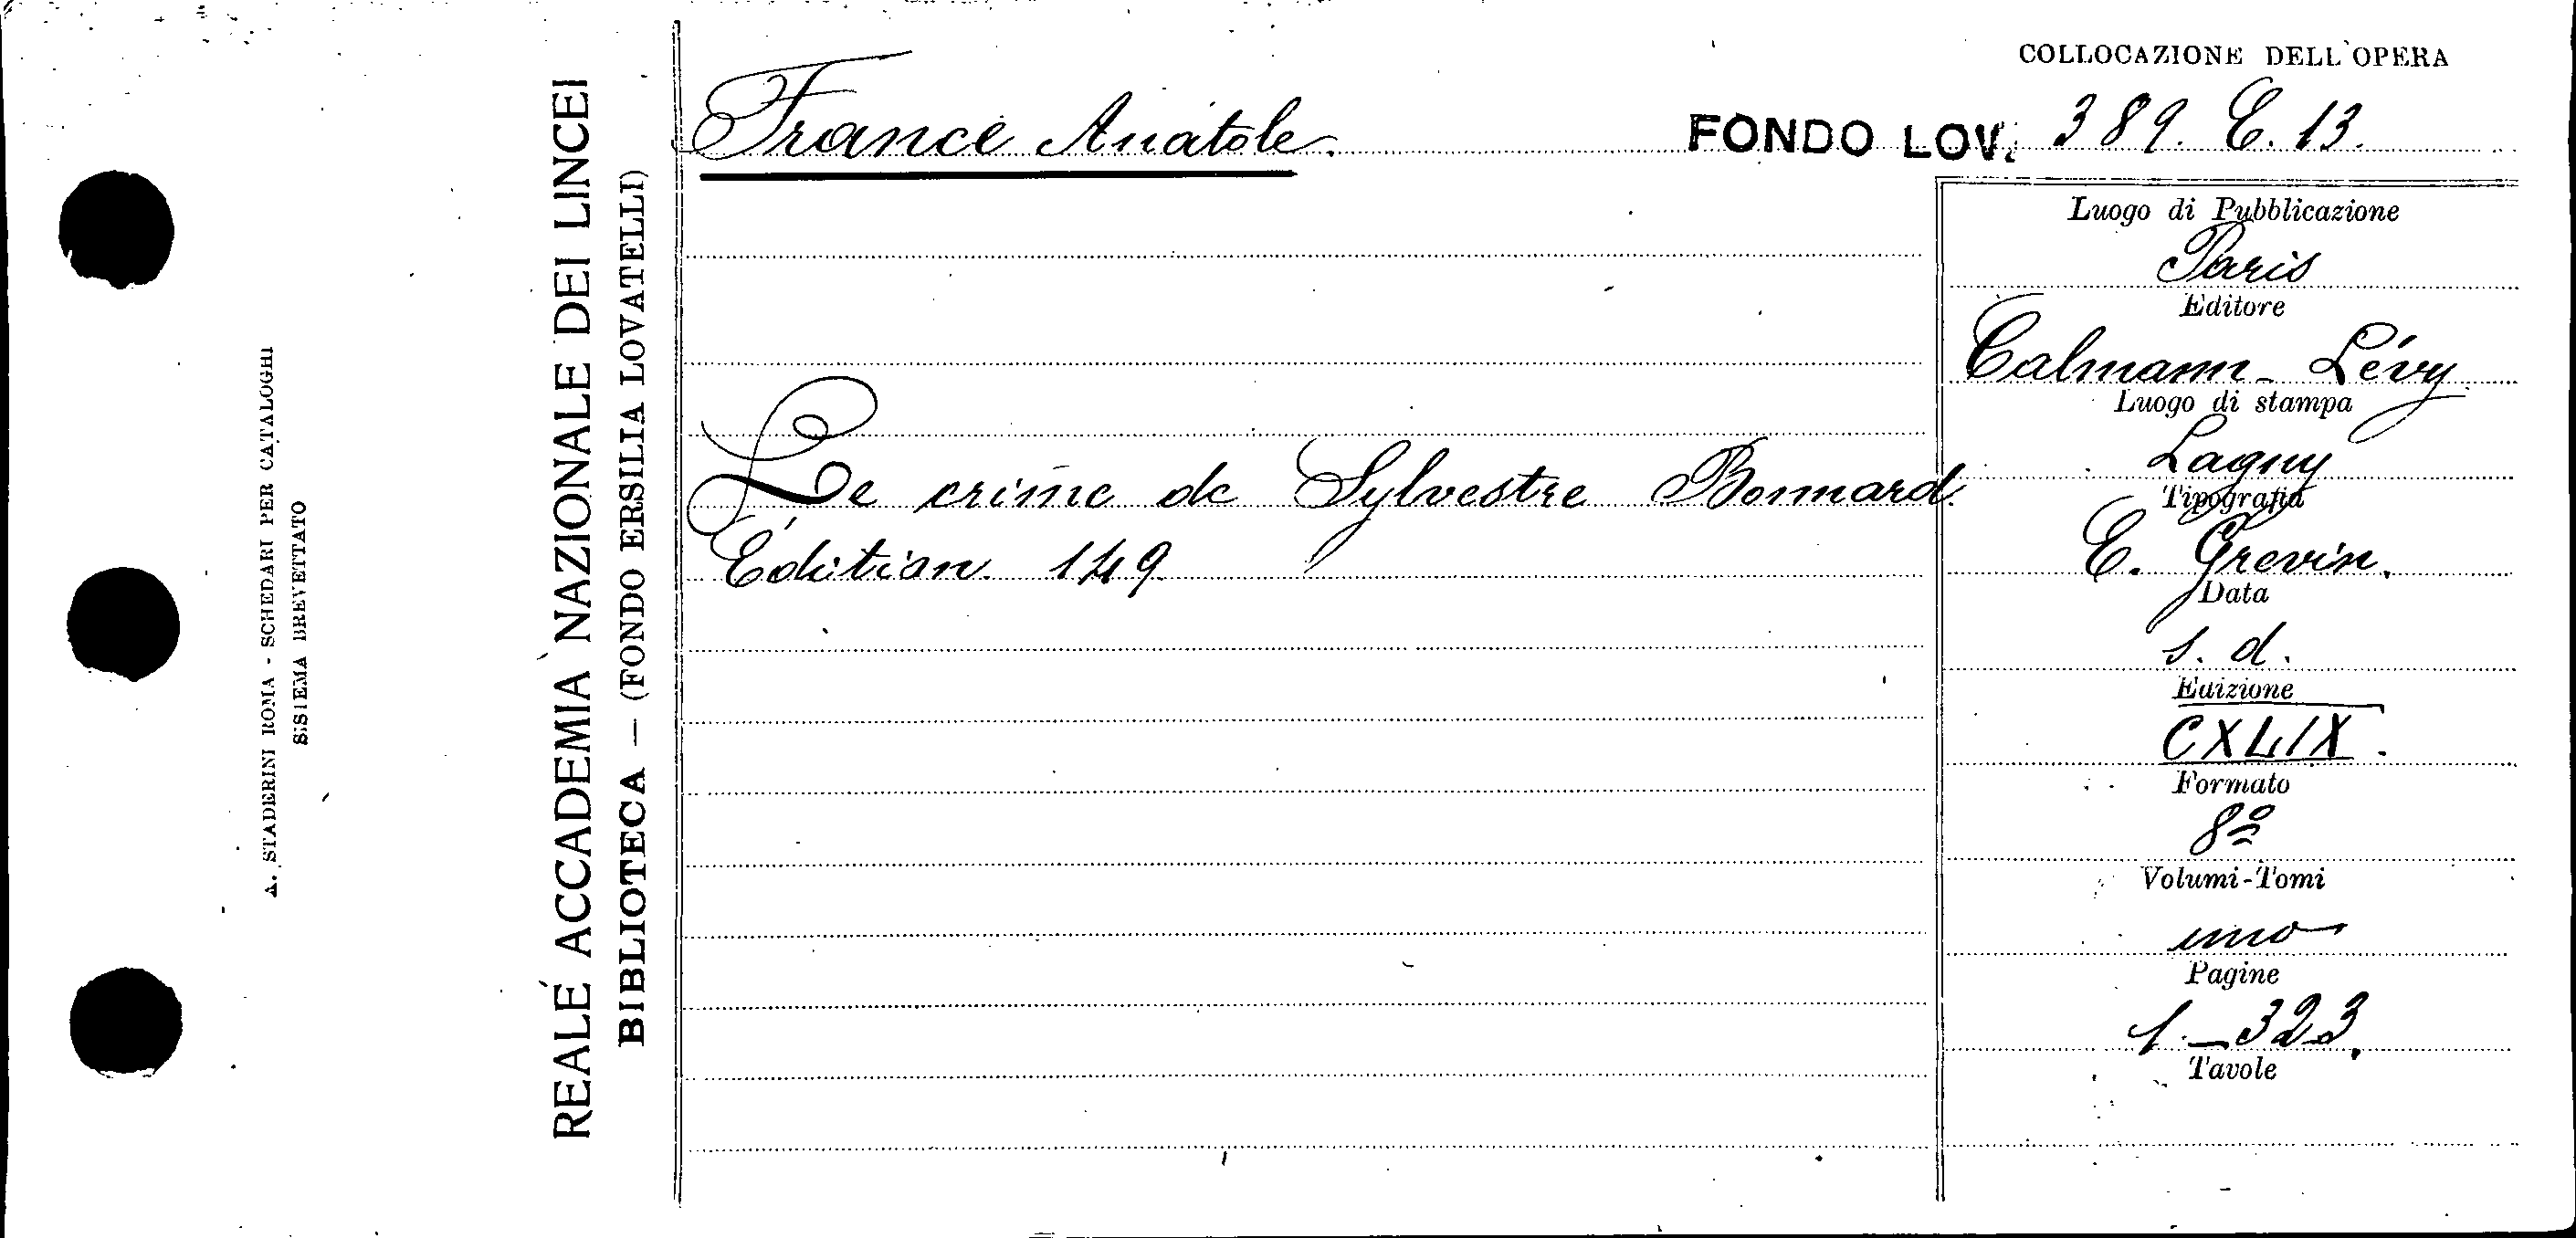 COLLOCAZIONE DELL'OPERA
France Anatole.
FONDO LOV. 389. E. 13.
Le crime de Sylvestre Bonnard.
Édition 149
Luogo di Pubblicazione
Paris
Editore
Calmann-Lévy
Luogo di stampa
Lagny
Tipografia
E. Grevin.
Data
s. d.
Edizione
CXLIX.
Formato
8º
Volumi-Tomi
uno
Pagine
1-323.
Tavole
REALE ACCADEMIA NAZIONALE DEI LINCEI
BIBLIOTECA — (FONDO ERSILIA LOVATELLI)
A. STADERINI ROMA - SCHEDARI PER CATALOGHI
SISTEMA BREVETTATO